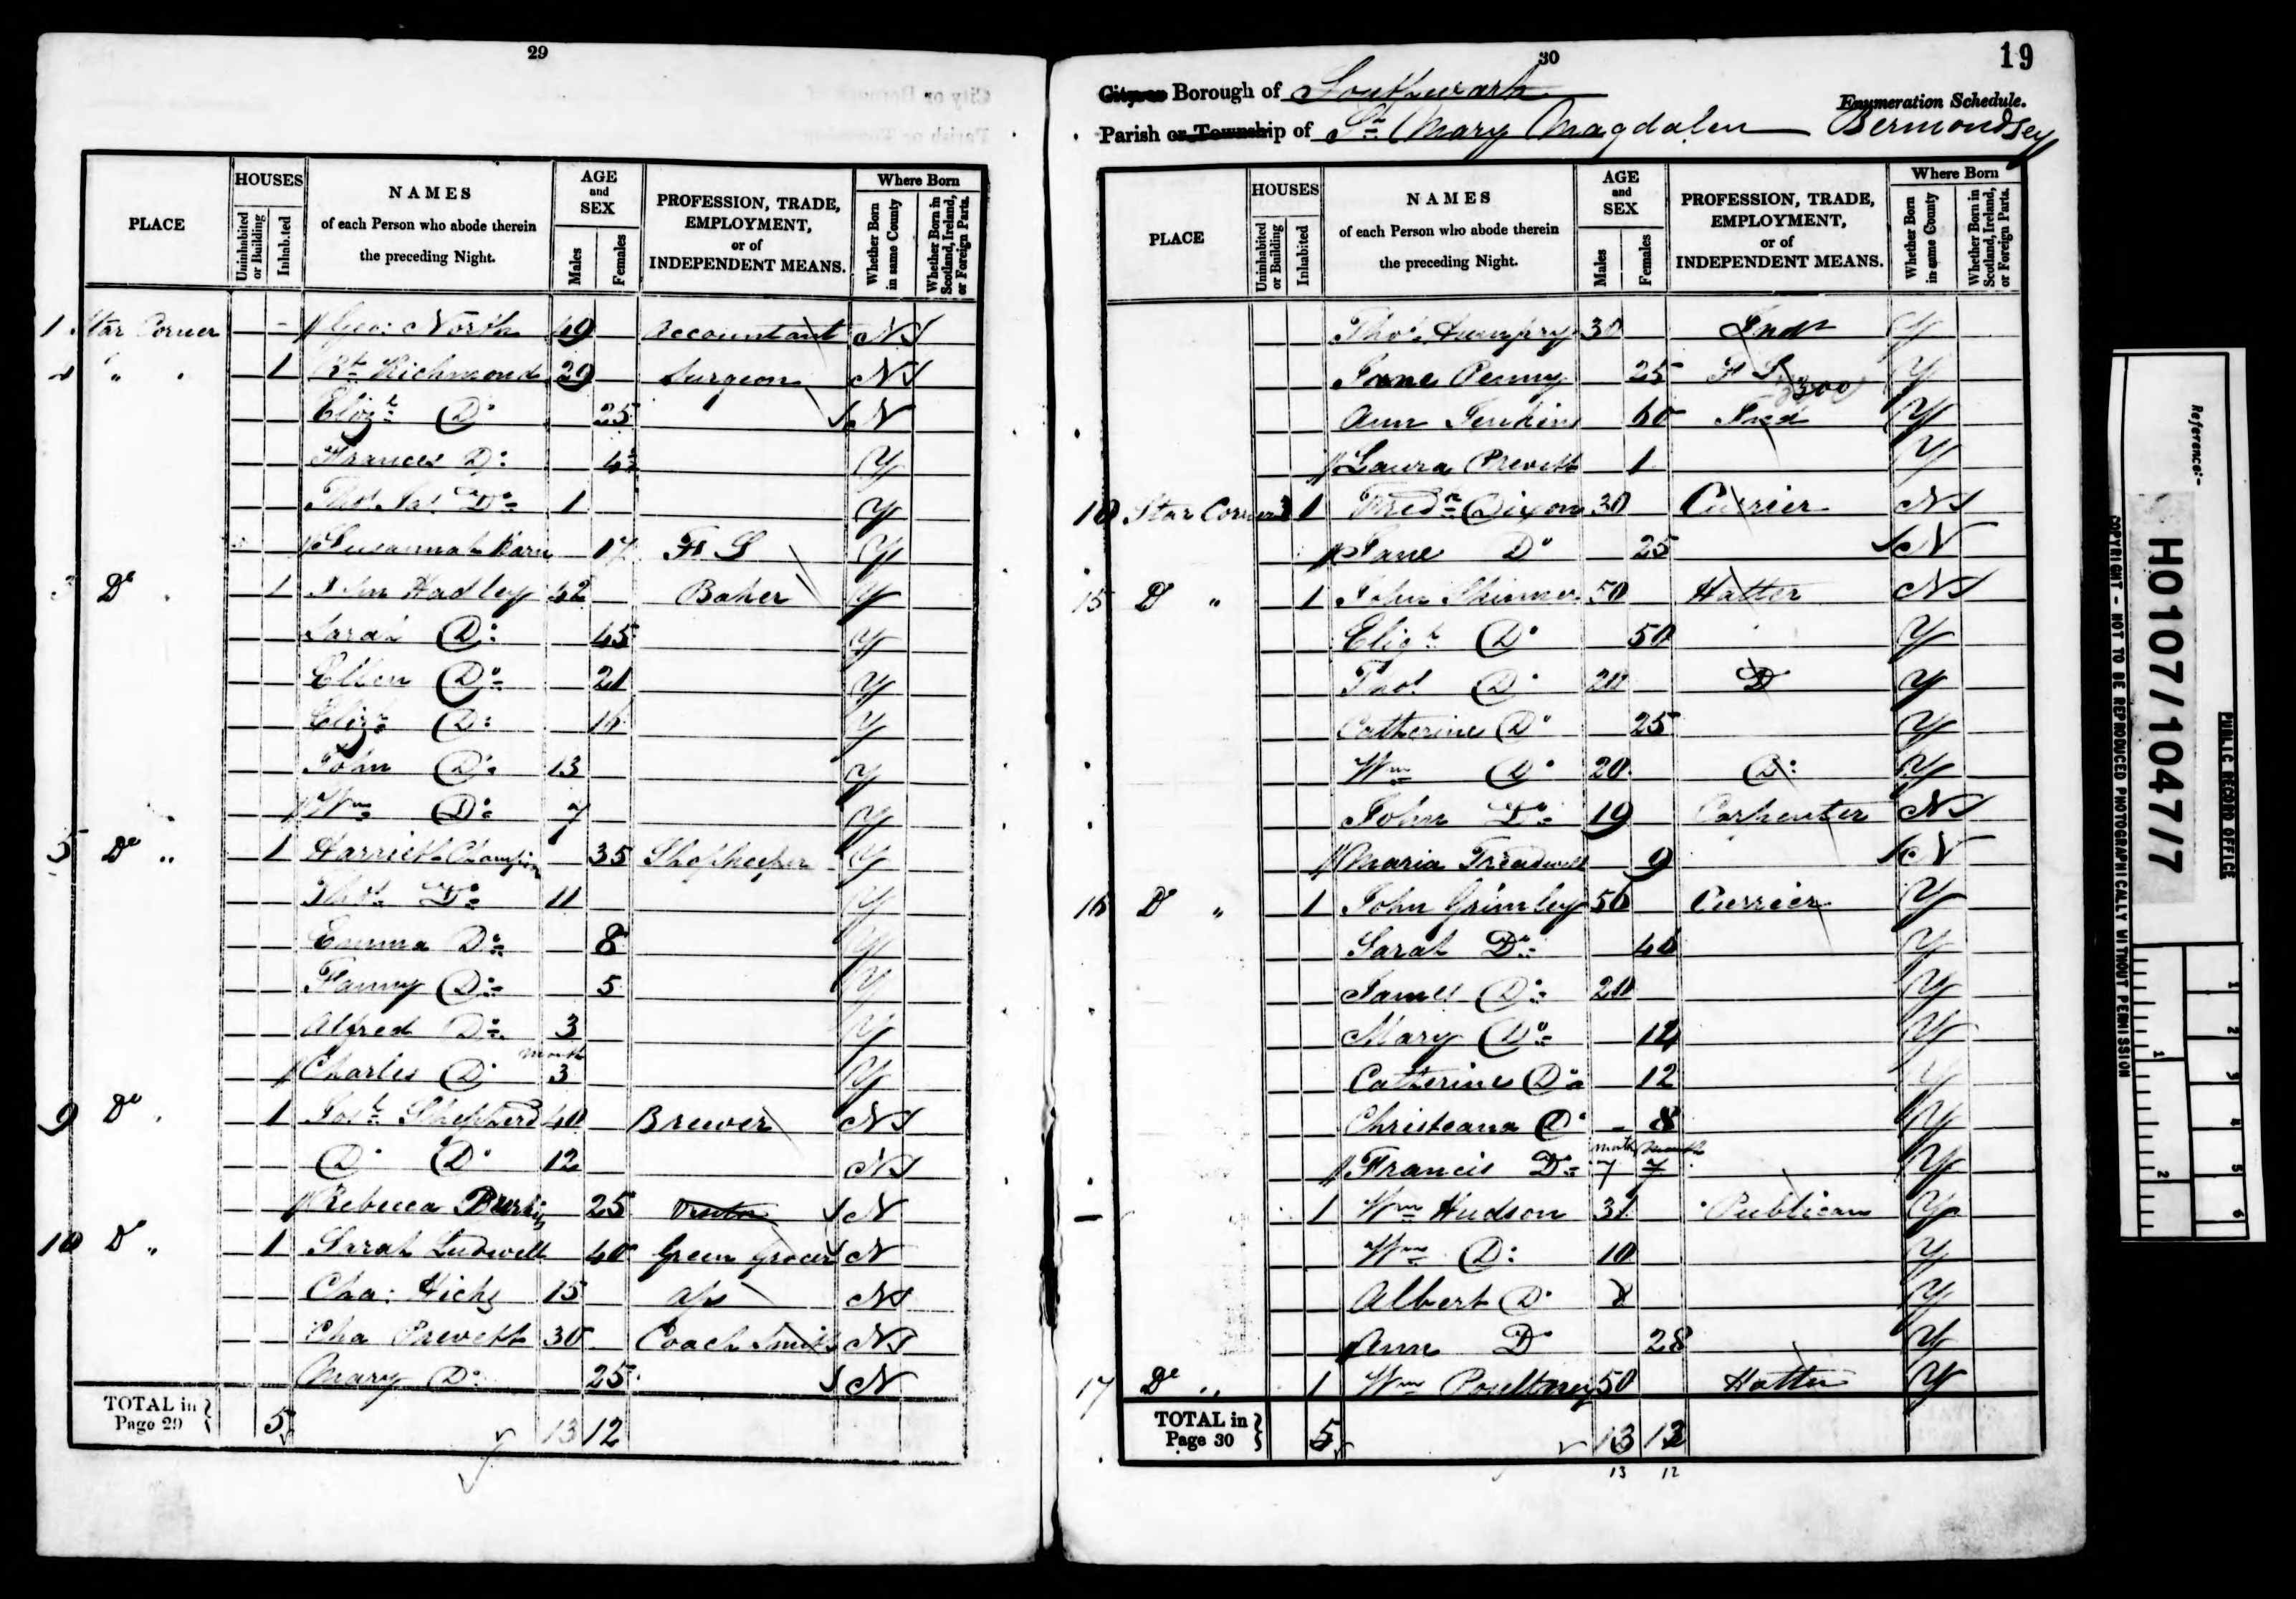 29
PLACE HOUSES NAMES AGE and SEX PROFESSION, TRADE, EMPLOYMENT, or of INDEPENDENT MEANS. Where Born
Uninhabited or Building Inhabited of each Person who abode therein the preceding Night. Males Females Whether Born in same County Whether Born in Scotland, Ireland, or Foreign Parts.
1 Star Corner Geo: North 49 Accountant N
" 1 Rt Richmond 29 Surgeon N
Elizh Do 25 N
Frances Do Y
Thos Do 1 Y
Susannah 17 F S Y
3 Do 1 John Hadley 42 Baker Y
Sarah Do 45 Y
Ellen Do 21 Y
Elizh Do 16 Y
John Do 13 Y
Wm Do 7 Y
5 Do " 1 Harriett Champion 35 Shopkeeper Y
Thos Do 11 Y
Emma Do 8 Y
Fanny Do 5 Y
Alfred Do 3 Y
Charles Do month 3 Y
9 Do 1 Josh Shepherd 40 Brewer N
Do Do 12 N
Rebecca 25 N
10 Do " 1 Sarah Ludwell 40 Green Grocer N
Cha: Hicks 15 Ap N
Cha Prevett 30 Coach Smith N
Mary Do 25 N
TOTAL in Page 29 5 13 12
30
19
City or Borough of Southwark
Enumeration Schedule.
Parish or Township of St Mary Magdalen Bermondsey
PLACE HOUSES NAMES AGE and SEX PROFESSION, TRADE, EMPLOYMENT, or of INDEPENDENT MEANS. Where Born
Uninhabited or Building Inhabited of each Person who abode therein the preceding Night. Males Females Whether Born in same County Whether Born in Scotland, Ireland, or Foreign Parts.
Thos Humphry 30 Indt Y
Jane Penny 25 F S Y
Ann Jenkins 60 Ind Y
Laura Prevett 1 Y
Star Corner 1 Fredk Dixon 30 Currier N
Jane Do 25 N
15 Do " 1 John Skinner 50 Hatter N
Elizh Do 50 Y
Thos Do 20 Do Y
Catherine Do 25 Y
Wm Do 20 Do Y
John Do 19 Carpenter N
Maria Treadwell 9 N
16 Do " 1 John Grimley 50 Currier Y
Sarah Do 40 Y
James Do 20 Y
Mary Do 14 Y
Catherine Do 12 Y
Christeana Do 8 Y
Francis Do month 7 month 7 Y
1 Wm Hudson 31 Publican Y
Wm Do 10 Y
Albert Do 8 Y
Ann Do 28 Y
17 Do " 1 Wm Poultney 50 Hatter Y
TOTAL in Page 30 5 13 12
13 12
Reference:-
HO107/1047/7
PUBLIC RECORD OFFICE
COPYRIGHT - NOT TO BE REPRODUCED PHOTOGRAPHICALLY WITHOUT PERMISSION
1 2
1 2 3 4 5 6